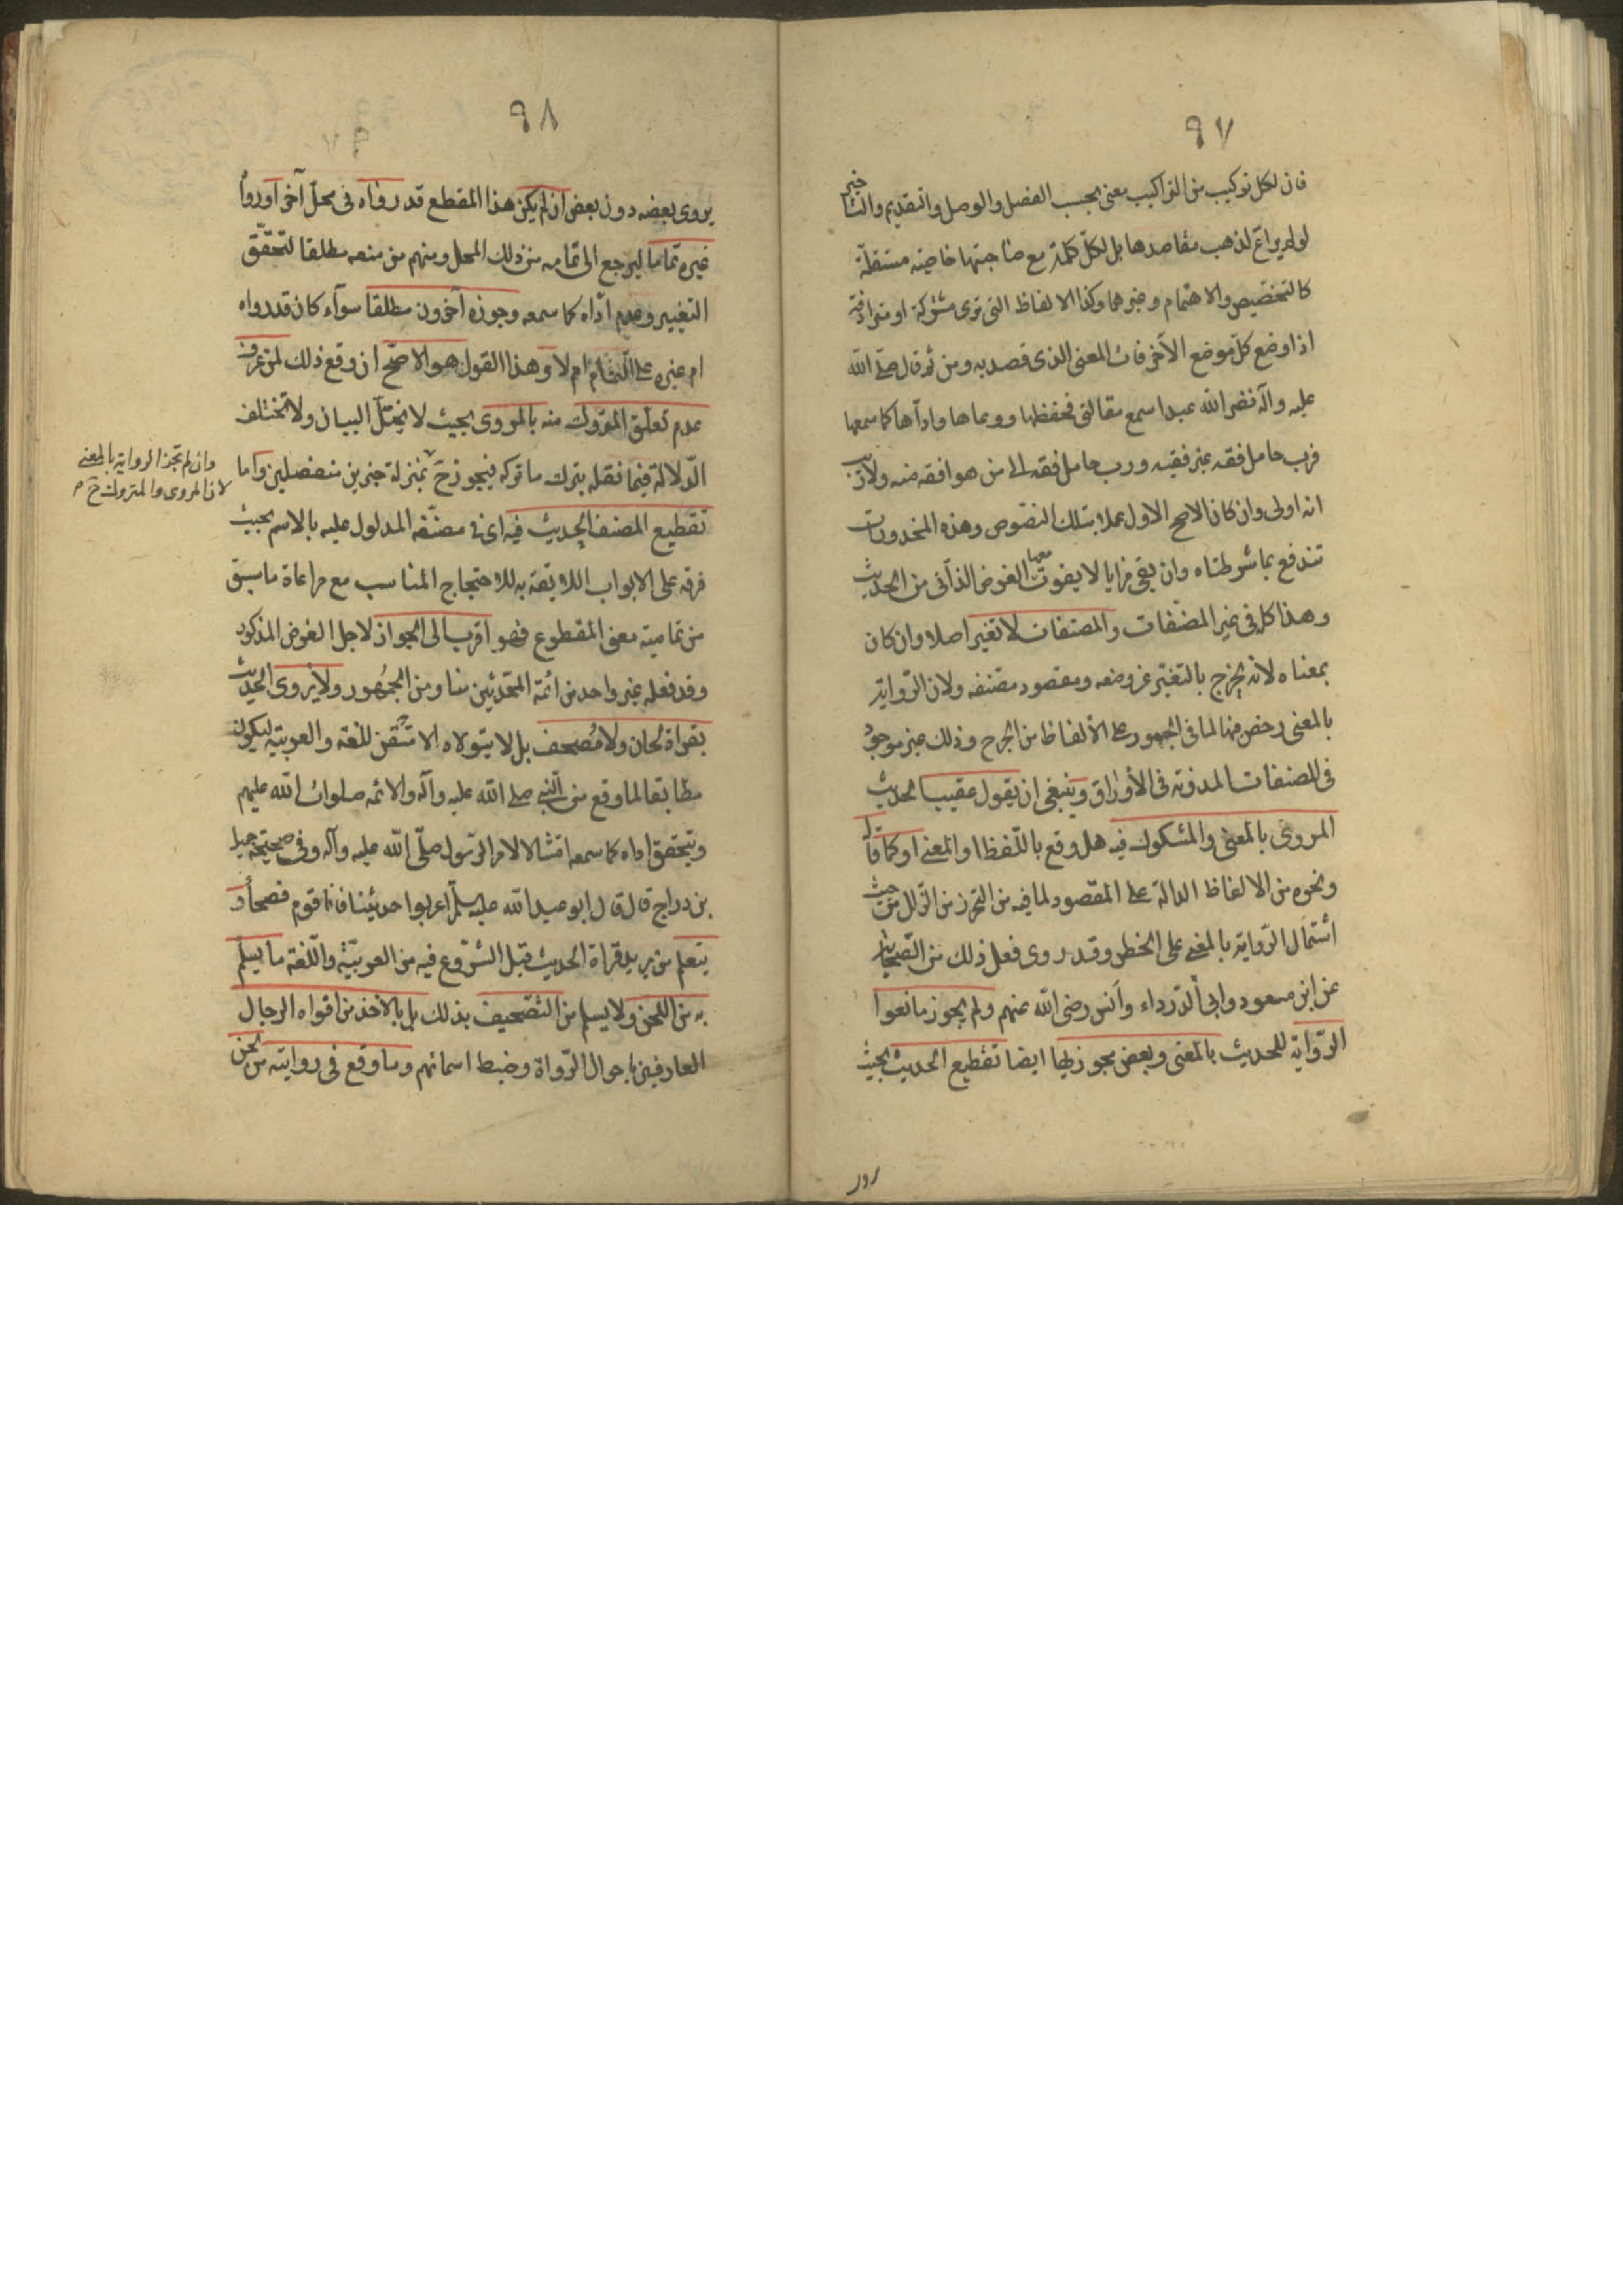 ٩٧
فان لكل تركيب من التراكيب معنى بحسب الفصل والوصل والتقديم والتاخير
لو لم يراع لذهب مقاصدها بل لكل كلمة مع صاحبتها خاصية مستقلة
كالتخصيص والاهتمام وغيرهما وكذا الالفاظ التى ترى مشتركة او مترادفة
اذا وضع كل موضع الآخر فات المعنى الذى قصد به ومن ثم قال صلى الله
عليه وآله نضر الله عبدا سمع مقالتى فحفظها ووعاها واداها كما سمعها
فرب حامل فقه غير فقيه ورب حامل فقه الى من هو افقه منه ولا ريب
انه اولى وان كان الاصح الاول عملا بتلك النصوص وهذه المحذورات
تندفع بما شرطناه وان بقى مزايا لا يفوت معها الغرض الذاتى من الحديث
وهذا كله فى غير المصنفات والمصنفات لا تغير اصلا وان كان
بمعناه لانه يخرج بالتغيير عن وضعه ومقصود مصنفه ولان الرواية
بالمعنى رخص فيها لما فى الجمود على الألفاظ من الحرج وذلك غير موجود
فى المصنفات المدونة فى الأوراق وينبغى ان يقول عقيب الحديث
المروى بالمعنى والمشكوك فيه هل وقع باللفظ او المعنى او كما قال
ونحوه من الالفاظ الدالة على المقصود لما فيه من التحرز من الزلل من حيث
اشتمال الرواية بالمعنى على الخطر وقد روى فعل ذلك من الصحابة
عن ابن مسعود وابى الدرداء وأنس رضى الله عنهم ولم يجوز مانعوا
الرواية للحديث بالمعنى وبعض مجوزيها ايضا تقطيع الحديث بحيث
٩٨
يروى بعضه دون بعض ان لم يكن هذا المقطع قد رواه فى محل آخر او رواه
غيره تماما ليرجع الى تمامه من ذلك المحل ومنهم من منعه مطلقا لتحقق
التغيير وعدم ادائه كما سمعه وجوزه آخرون مطلقا سواء كان قد رواه
ام غيره على التمام ام لا وهذا القول هو الاصح ان وقع ذلك لمن عرف
عدم تعلق المتروك منه بالمروى بحيث لا يختل البيان ولا تختلف
الدلالة فيما نقله بترك ما تركه فيجوز ح بمنزلة خبرين منفصلين واما
وان لم تجز الرواية بالمعنى
لان المروى والمتروك ح
تقطيع المصنف الحديث فيه اى فى مصنفه المدلول عليه بالاسم بحيث
فرقه على الابواب اللايقة به للاحتجاج المناسب مع مراعاة ما سبق
من تمامية معنى المقطوع فهو اقرب الى الجواز لاجل الغرض المذكور
وقد فعله غير واحد من ائمة المحدثين منا ومن الجمهور ولا يروى الحديث
بقراءة لحان ولا مصحف بل لا يتولاه الا متقن للغة والعربية ليكون
مطابقا لما وقع من النبى صلى الله عليه وآله والائمة صلوات الله عليهم
ويتحقق اداه كما سمعه امتثالا لامر الرسول صلى الله عليه وآله وفى صحيحة جميل
بن دراج قال قال ابو عبد الله عليه السلم اعربوا حديثنا فانا قوم فصحاء و
يتعلم من يريد قراءة الحديث قبل الشروع فيه من العربية واللغة ما يسلم
به من اللحن ولا يسلم من التصحيف بذلك بل بالاخذ من افواه الرجال
العارفين باحوال الرواة وضبط اسمائهم وما وقع فى روايته من لحن